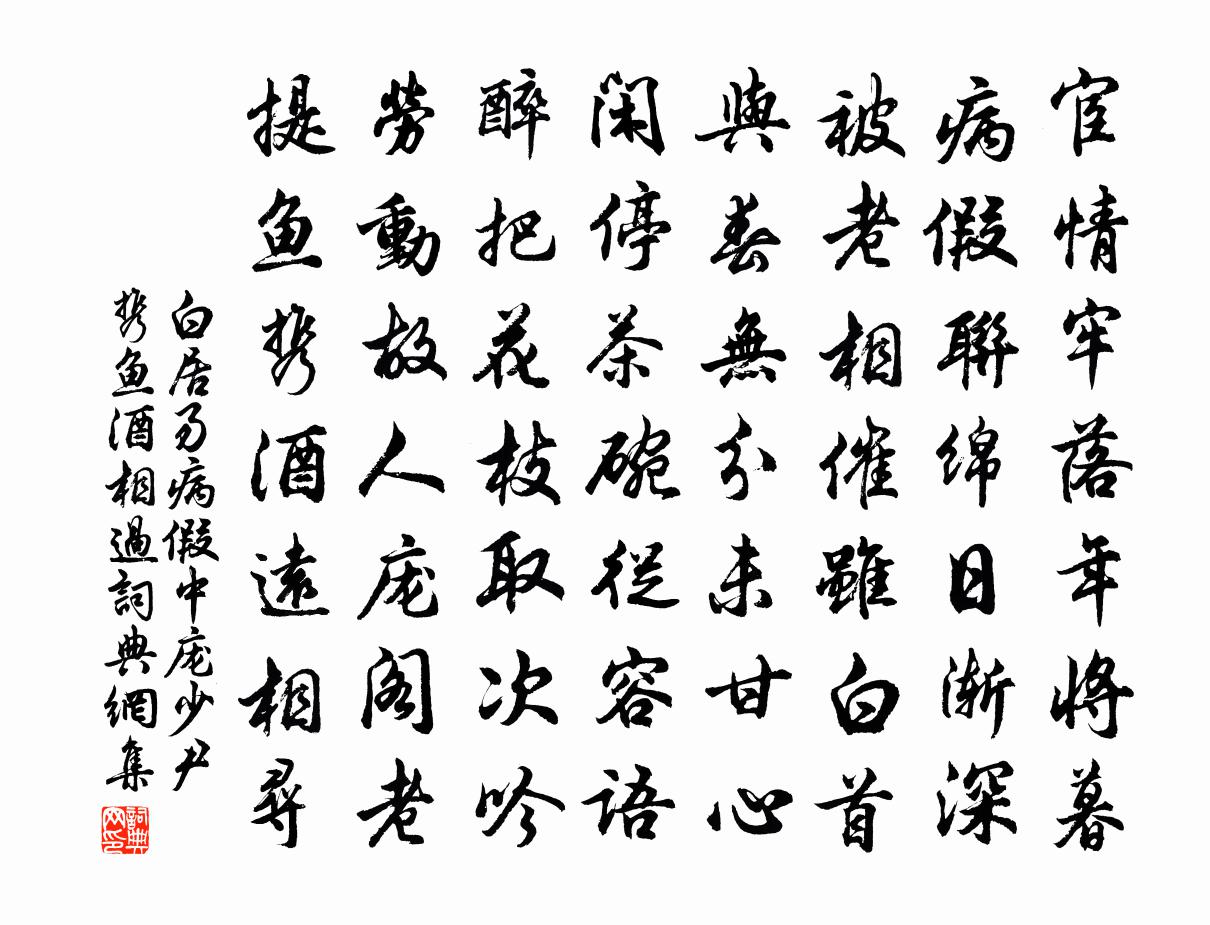 宦情牢落年将暮
病假聯绵日渐深
被老相催雖白首
與春無分未甘心
闲停茶碗從容語
醉把花枝取次吟
勞動故人庞阁老
提鱼携酒遠相尋
白居易病假中庞少尹
携鱼酒相過詞典網集
詞典网印